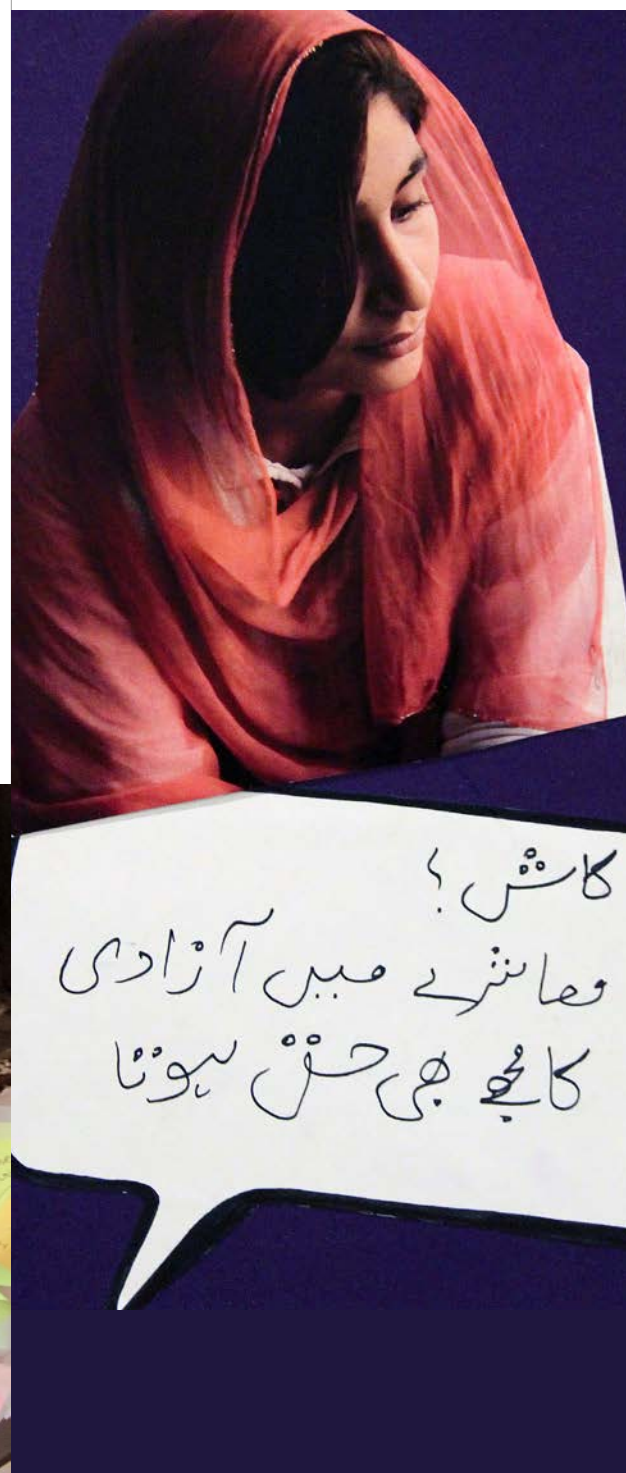 کاش !
معاشرے میں آزادی
کا مجھے بھی حق ہوتا